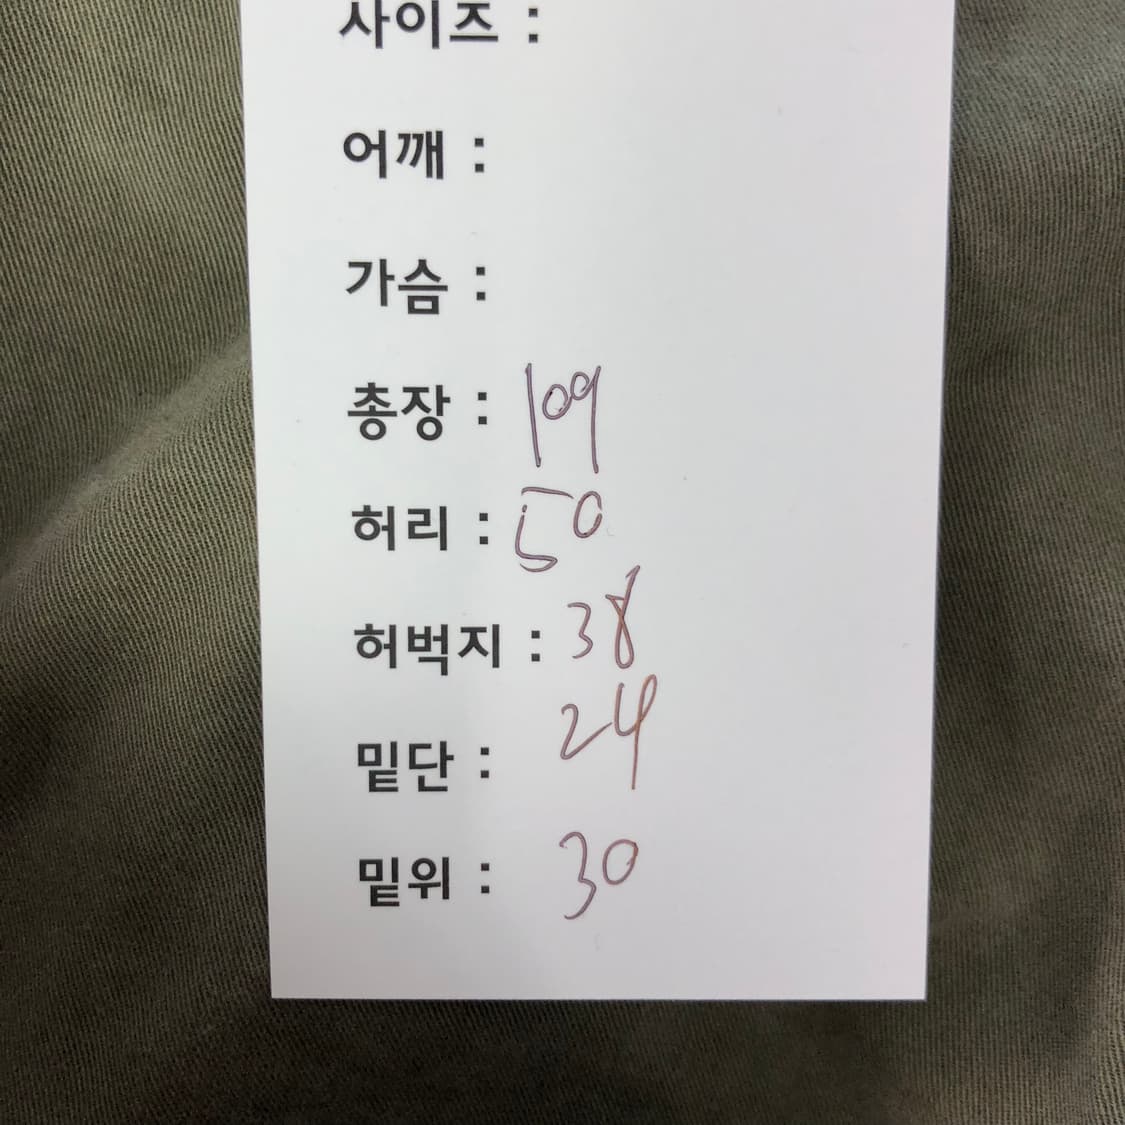 사이즈 :
어깨 :
가슴 :
총장 : 109
허리 : 50
허벅지 : 38
밑단 : 24
밑위 : 30